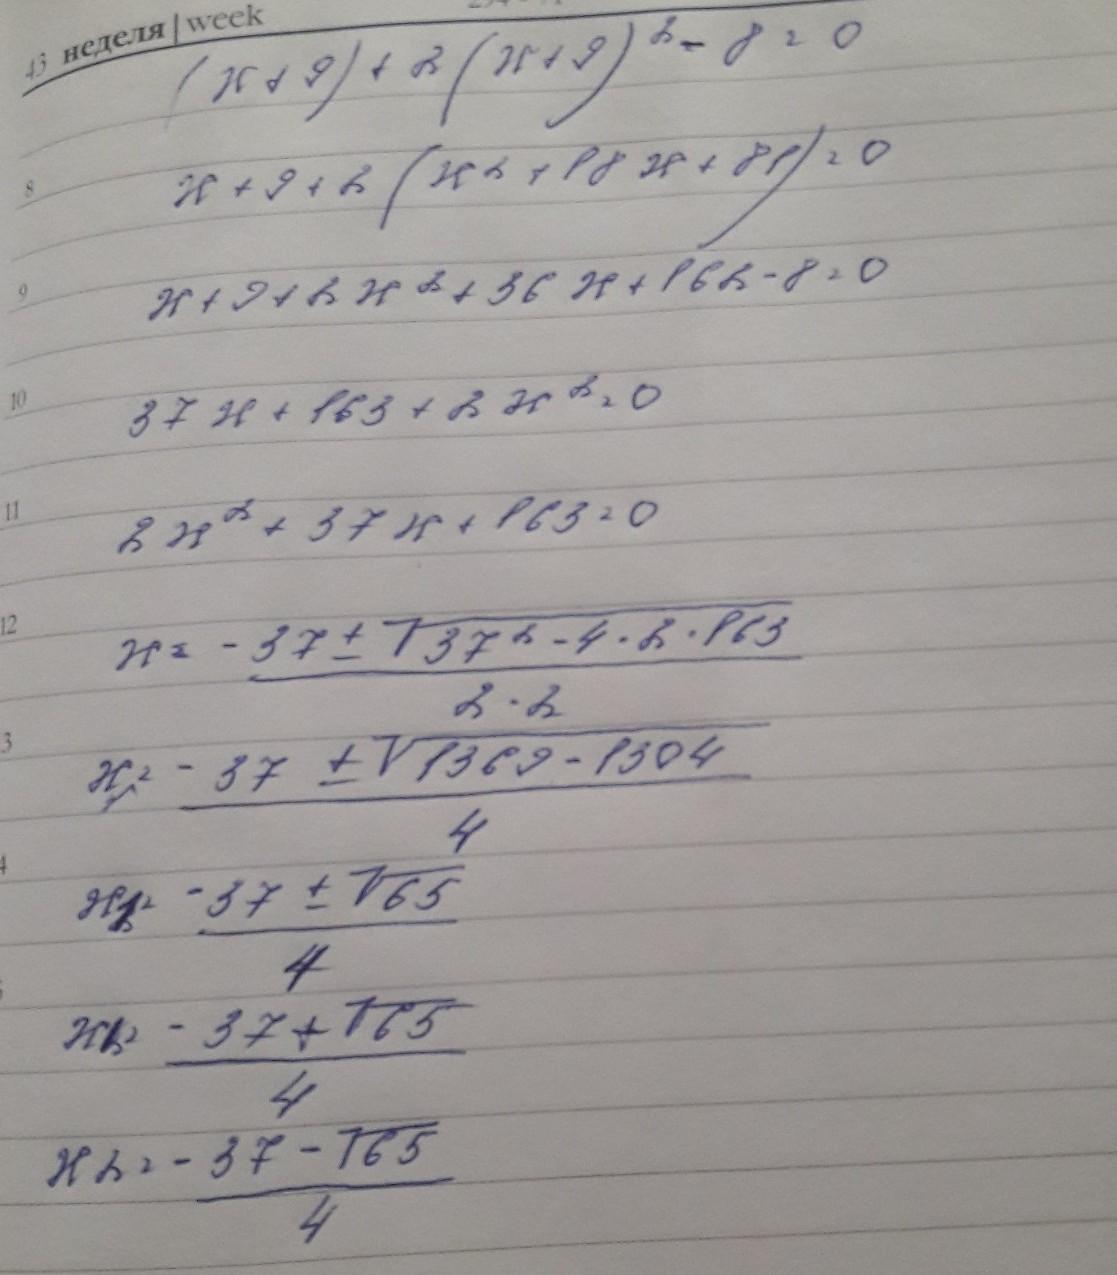 43 неделя | week
(x+9)+2(x+9)²-8=0
8
x+9+2(x²+18x+81)=0
9
x+9+2x²+36x+162-8=0
10
37x+163+2x²=0
11
2x²+37x+163=0
12
x= -37±√37²-4·2·163
2·2
3
x= -37 ±√1369-1304
4
4
x= -37 ± √65
4
x= -37+√65
4
x2= -37-√65
4